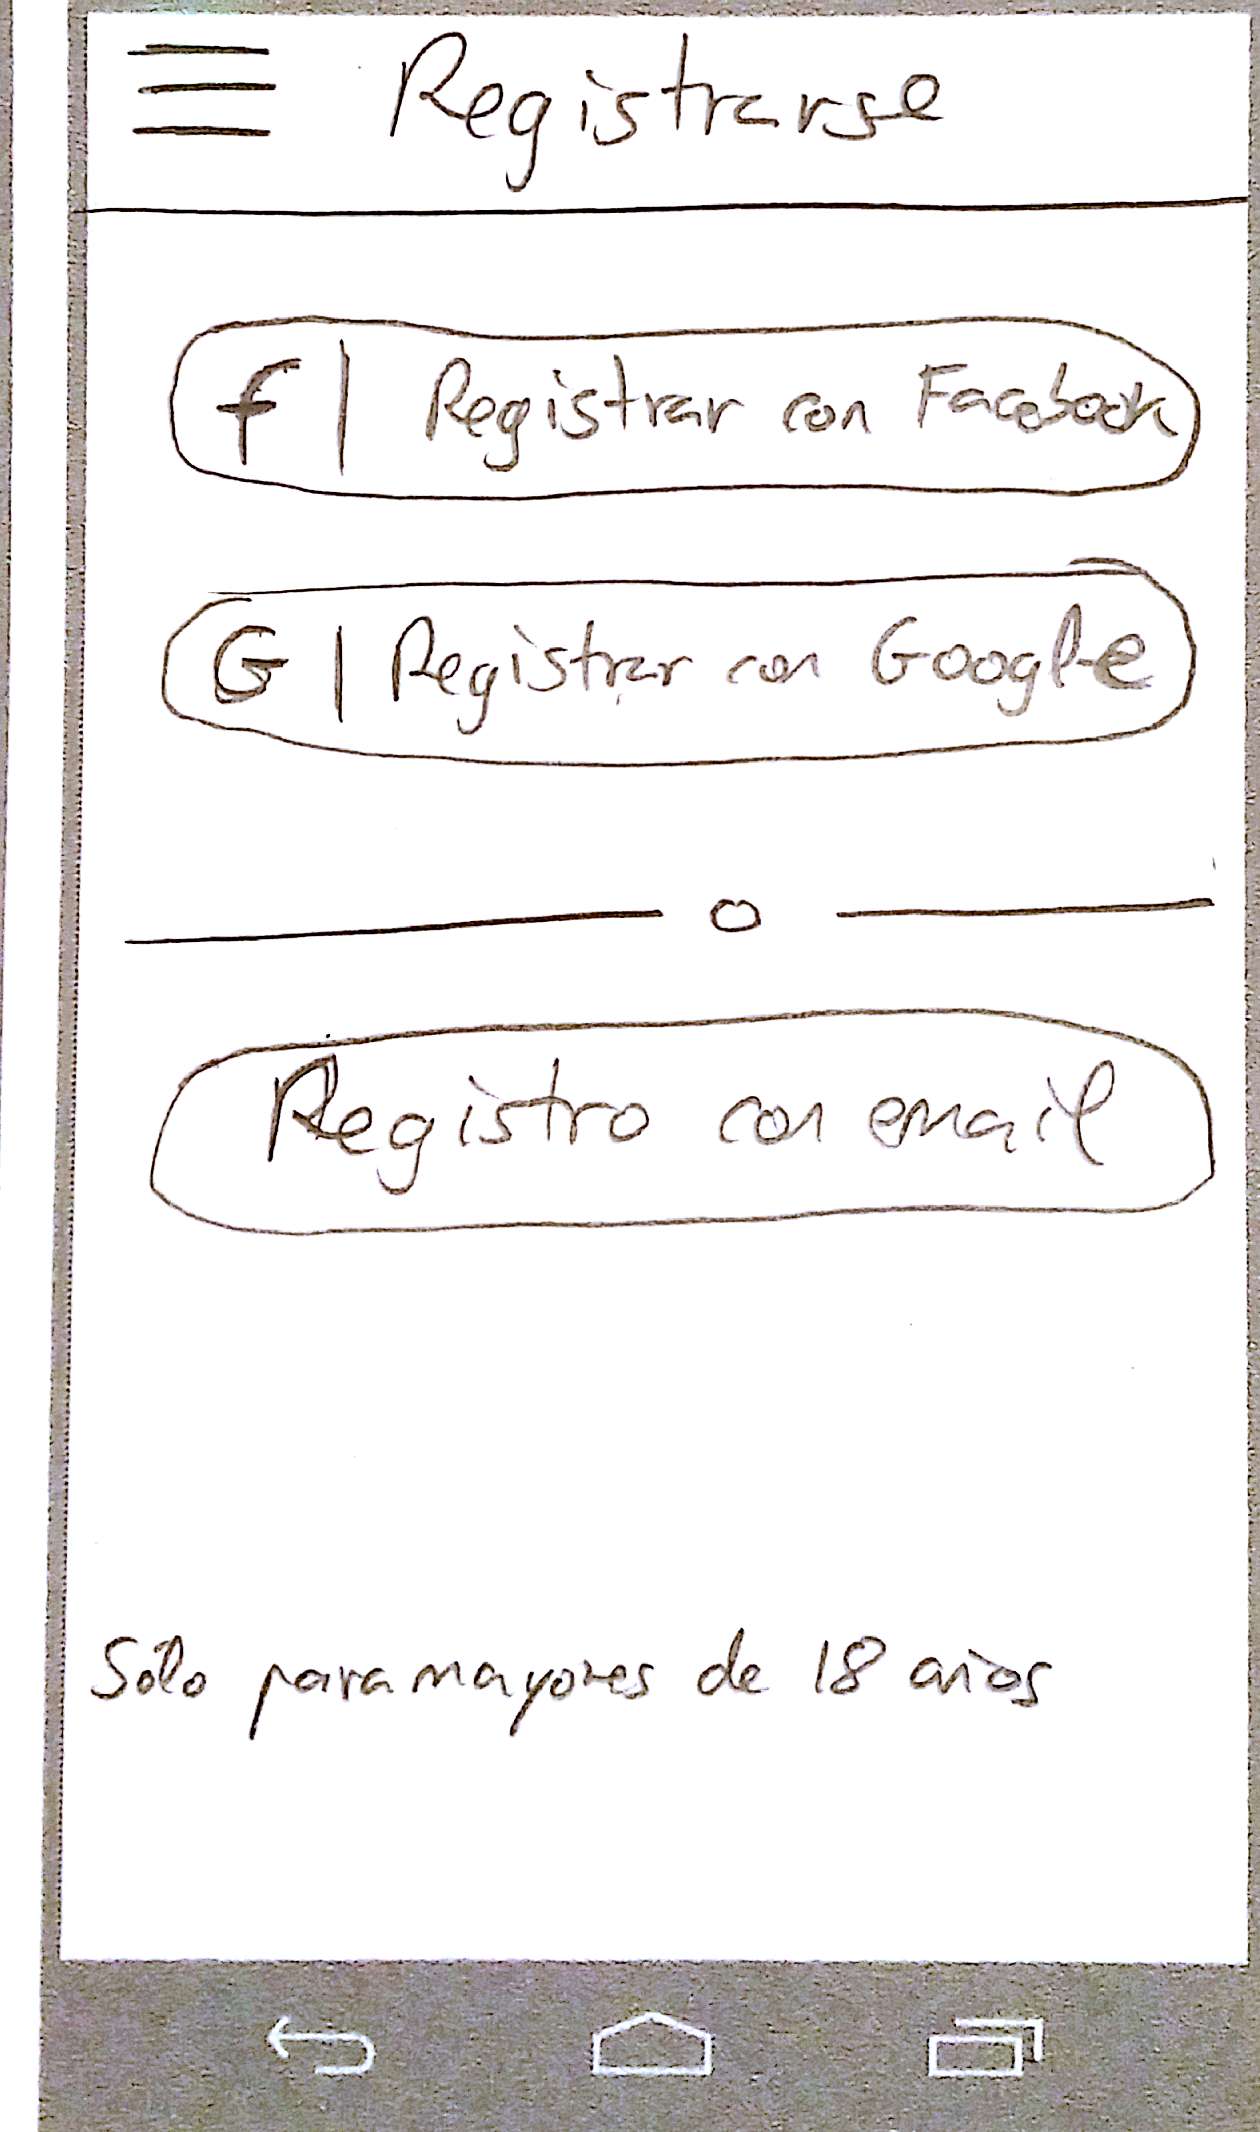 Registrarse
f | Registrar con Facebook
G | Registrar con Google
o
Registro con email
Sólo para mayores de 18 años